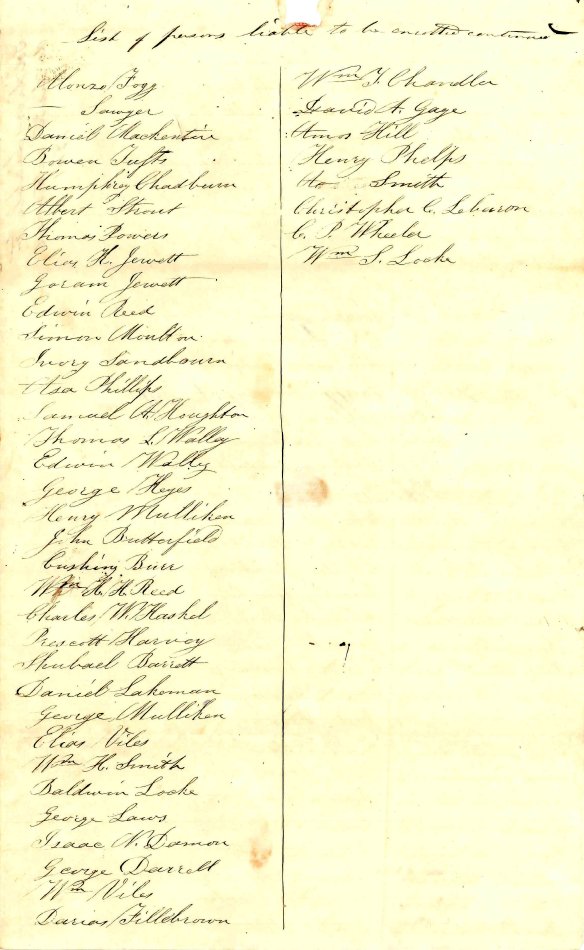 List of persons liable to be enrolled continued
Alonzo Fogg
— Sawyer
Daniel Mackentire
Bowen Tufts
Humphrey Chadburn
Albert Strout
Thomas Powers
Elias H. Jewett
Goram Jewett
Edwin Reed
Simon Moulton
Ivory Sandbourn
Asa Phillips
Samuel A. Houghton
Thomas L. Walley
Edwin Wally
George Keyes
Henry Mulliken
John Butterfield
Cushing Burr
Wm H. H. Reed
Charles W. Haskel
Prescott Harvey
Shubael Barrett
Daniel Lakeman
George Mulliken
Elias Viles
Wm H. Smith
Baldwin Locke
George Laws
Isaac N. Damon
George Darrell
Wm Viles
Darias Fillebrown
Wm T. Chandler
David A. Gage
Amos Hill
Henry Phelps
Smith
Christopher C. Lebaron
C. P. Wheeler
Wm S. Locke